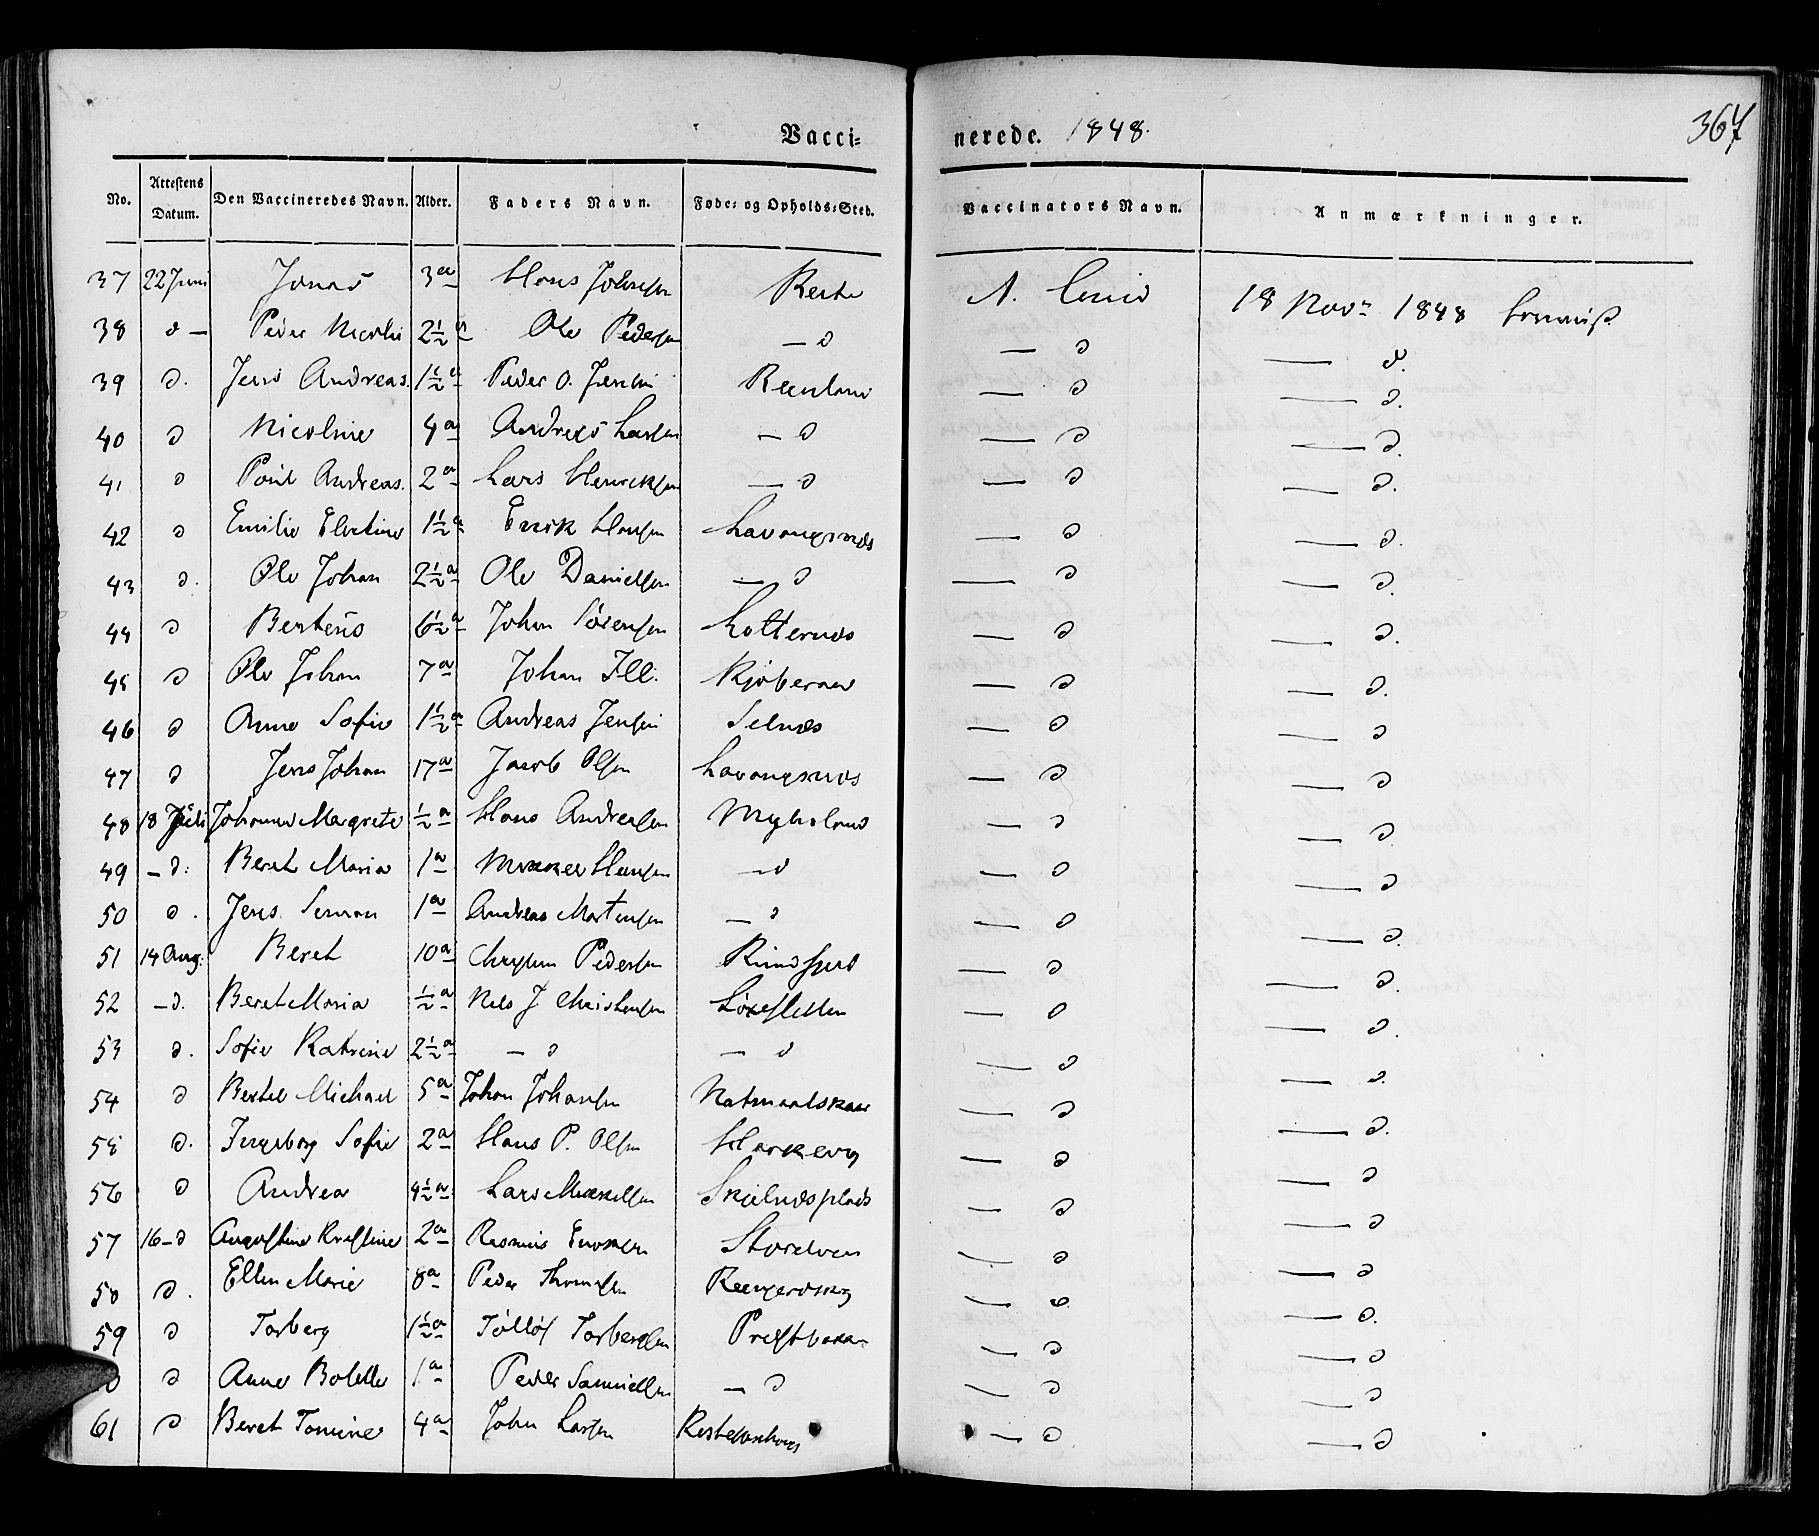 Vacci= nerede. 1848. 367
No. Attestens Datum. Den Vaccineredes Navn. Alder. Faders Navn. Føde= og Opholds=Sted. Vaccinators Navn. Anmærkninger.
37 22 Juni Jonas 3 a Hans Johnsen A. 18 Nov. 1848
38 d — Peder Nicolai 2½ a Ole Pedersen — d — d — d.
39 d. Jens Andreas. 1½ a Peder O. Jensen — d — d.
40 d Nicoline 4 a Andreas Larsen — d — d — d.
41 d Poul Andreas. 2 a Lars Henricksen — d — d — d.
42 d Emilie Elertine 1½ a Erick Hansen Lavangsnæs — d — d.
43 d. Ole Johan 2½ a Ole Danielsen — d — d — d.
44 d Berteus 6½ a Johan Sørensen Lotternæs — d — d.
45 d Ole Johan 7 a Johan Ill. — d — d.
46 d Anne Sofie 1½ a Andreas Jensen Selnæs — d — d
47 d Jens Johan 17 a Jacob Olsen Lavangsnæs — d — d
48 18 Juli Johanne Margrete ½ a Hans Andreasen Myhland — d — d
49 — d: Beret Maria 1 a Hansen — d — d — d
50 d. Jens Simon 1 a Andreas Mortensen — d — d — d.
51 14 Aug: Beret 10 a Pedersen — d — d.
52 — d. Beret Maria ½ a Nils J Christensen — d — d.
53 d. Sofie Katrine 2½ a — d — d — d — d.
54 d Bertel Michael 5 a Johan Johansen — d — d.
55 d. Ingeborg Sofie 2 a Hans P. Olsen — d — d
56 d Andrea 4½ a Lars Mikkelsen — d — d
57 16 — d Augostine Kristine 2 a Rasmus Storelven — d — d
58 d. Ellen Marie 8 a Peder Thomesen — d — d.
59 d Torberg 1½ a Tolløf Torbergsen Prestbakken — d — d
d Anne Bolette 1 a Peder Samuelsen — d — d — d
61 d Beret Tomine 4 a John Larsen — d — d